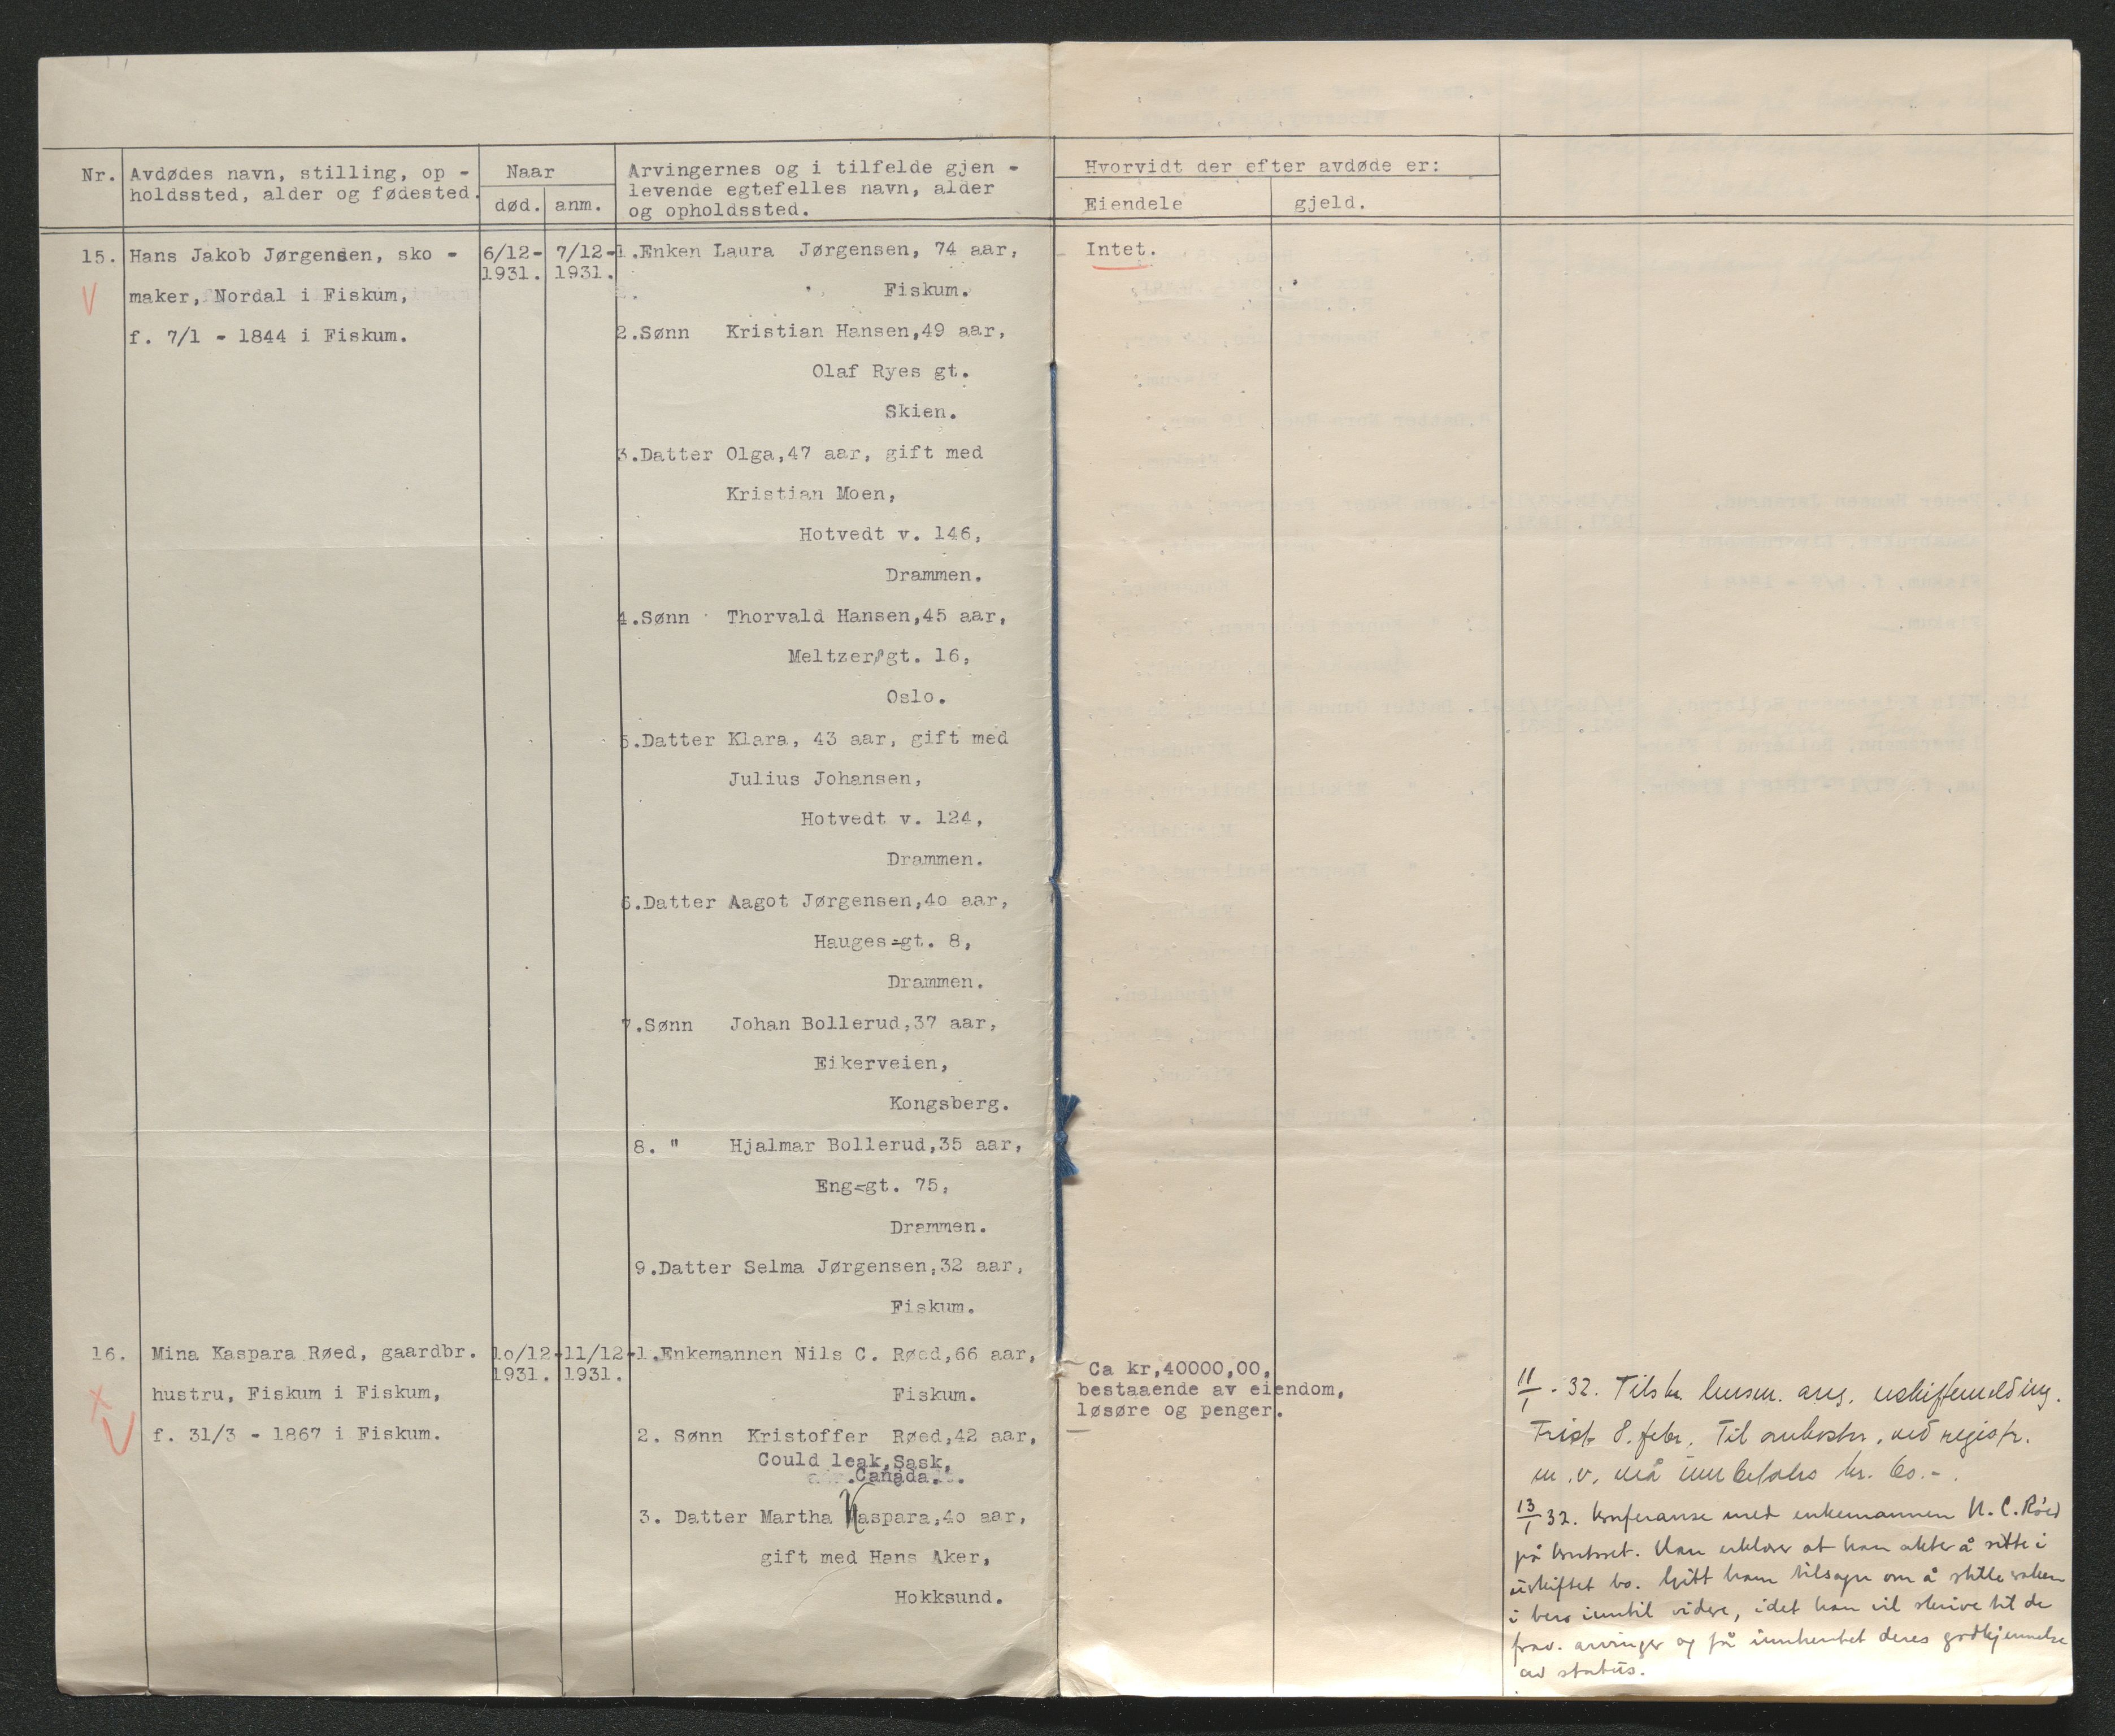 Nr. Avdødes navn, stilling, op -
holdssted, alder og fødested.
Naar
død. anm.
Arvingernes og i tilfelde gjen -
levende egtefelles navn, alder
og opholdssted.
Hvorvidt der efter avdøde er:
Eiendele gjeld.
15. Hans Jakob Jørgensen, sko -
maker, Nordal i Fiskum,
f. 7/1 - 1844 i Fiskum.
6/12-
1931.
7/12-
1931.
1.Enken Laura Jørgensen, 74 aar,
Fiskum.
2.Sønn Kristian Hansen,49 aar,
Olaf Ryes gt.
Skien.
3.Datter Olga,47 aar, gift med
Kristian Moen,
Hotvedt v. 146,
Drammen.
4.Sønn Thorvald Hansen,45 aar,
Meltzers gt. 16,
Oslo.
5.Datter Klara, 43 aar, gift med
Julius Johansen,
Hotvedt v. 124,
Drammen.
6.Datter Aagot Jørgensen,4o aar,
Hauges-gt. 8,
Drammen.
7.Sønn Johan Bollerud,37 aar,
Eikerveien,
Kongsberg.
8. " Hjalmar Bollerud,35 aar,
Eng-gt. 75,
Drammen.
9.Datter Selma Jørgensen,32 aar,
Fiskum.
Intet.
16. Mina Kaspara Røed, gaardbr.
hustru, Fiskum i Fiskum,
f. 31/3 - 1867 i Fiskum.
1o/12-
1931.
11/12-
1931.
1.Enkemannen Nils C. Røed,66 aar,
Fiskum.
2. Sønn Kristoffer Røed,42 aar,
Could leak,Sask,
Canada.
3. Datter Martha Kaspara,4o aar,
gift med Hans Aker,
Hokksund.
Ca kr,40000,00,
bestaaende av eiendom,
løsøre og penger.
11/1 - 32. Tilskr. lensm. ang. uskiftemelding.
Frist 8. febr. Til omkostn. ved registr.
m.v. må innbetales kr. 60.-.
13/1 32. Konferanse med enkemannen N. C. Røed
på kontoret. Han erklærer at han akter å sitte i
uskiftet bo. Gitt ham tilsagn om å stille saken
i bero inntil videre, idet han vil skrive til de
frav. arvinger og få innhentet deres godkjennelse
av status.